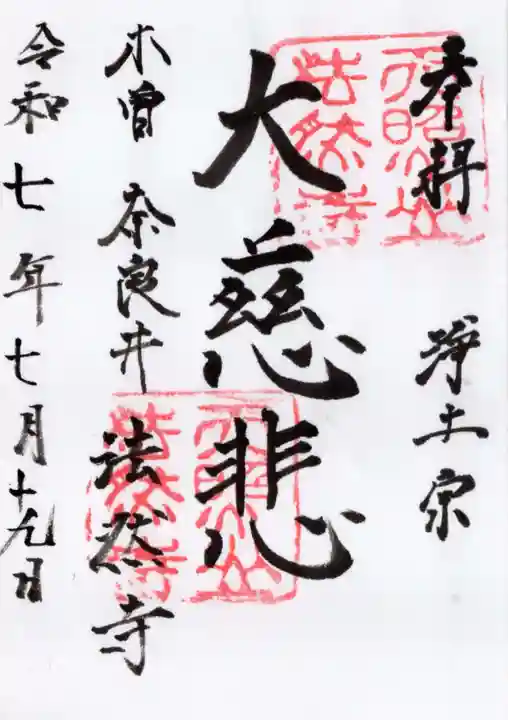 奉拝
浄土宗
大慈悲
木曽 奈良井
法然寺
令和七年七月十九日
法然寺
法然寺